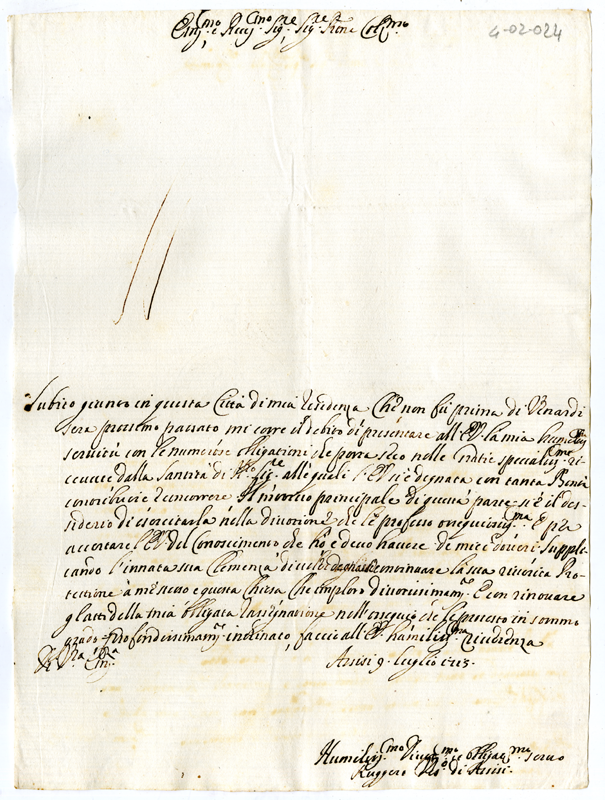 4-02-024
Em.mo e Rev.mo Sig.re Sig.re P.rone Col.mo
Subito giunto in questa Città di mia residenza che non fù prima di Venardi
sera prossimo passato mi corre il debito di presentare all'E.V. la mia
servitù con le numerose obligationi che porta seco nelle gratie specialis.me ri-
cevute dalla Santità di N.ro Sig.re alle quali l'E.V. si è degnata con tanta Benig.
contribuire e concorrere. Il motivo principale di questa parte si è il des-
siderio di esercitarla nella divotione che le professo ossequiosis.ma E per
accertare l'E.V. del conoscimento che hò e devo havere di miei doveri. Suppli-
cando l'innata sua Clemenza di continuare la sua Pro-
tettione à me stesso e questa Chiesa che imploro divotissimam.te E con rinovare
gl'atti della mia obligata rassegnatione nell'ossequio che le protesto in sommo
grado profondissimam.te inchinato, faccio all'E.V. humiliss.ma riverenza
Di V.ra Em.za
Assisi 9. Luglio 1713.
Humiliss.mo Divot.mo et obligat.mo servo
Ruggero Vesc.o di Assisi.